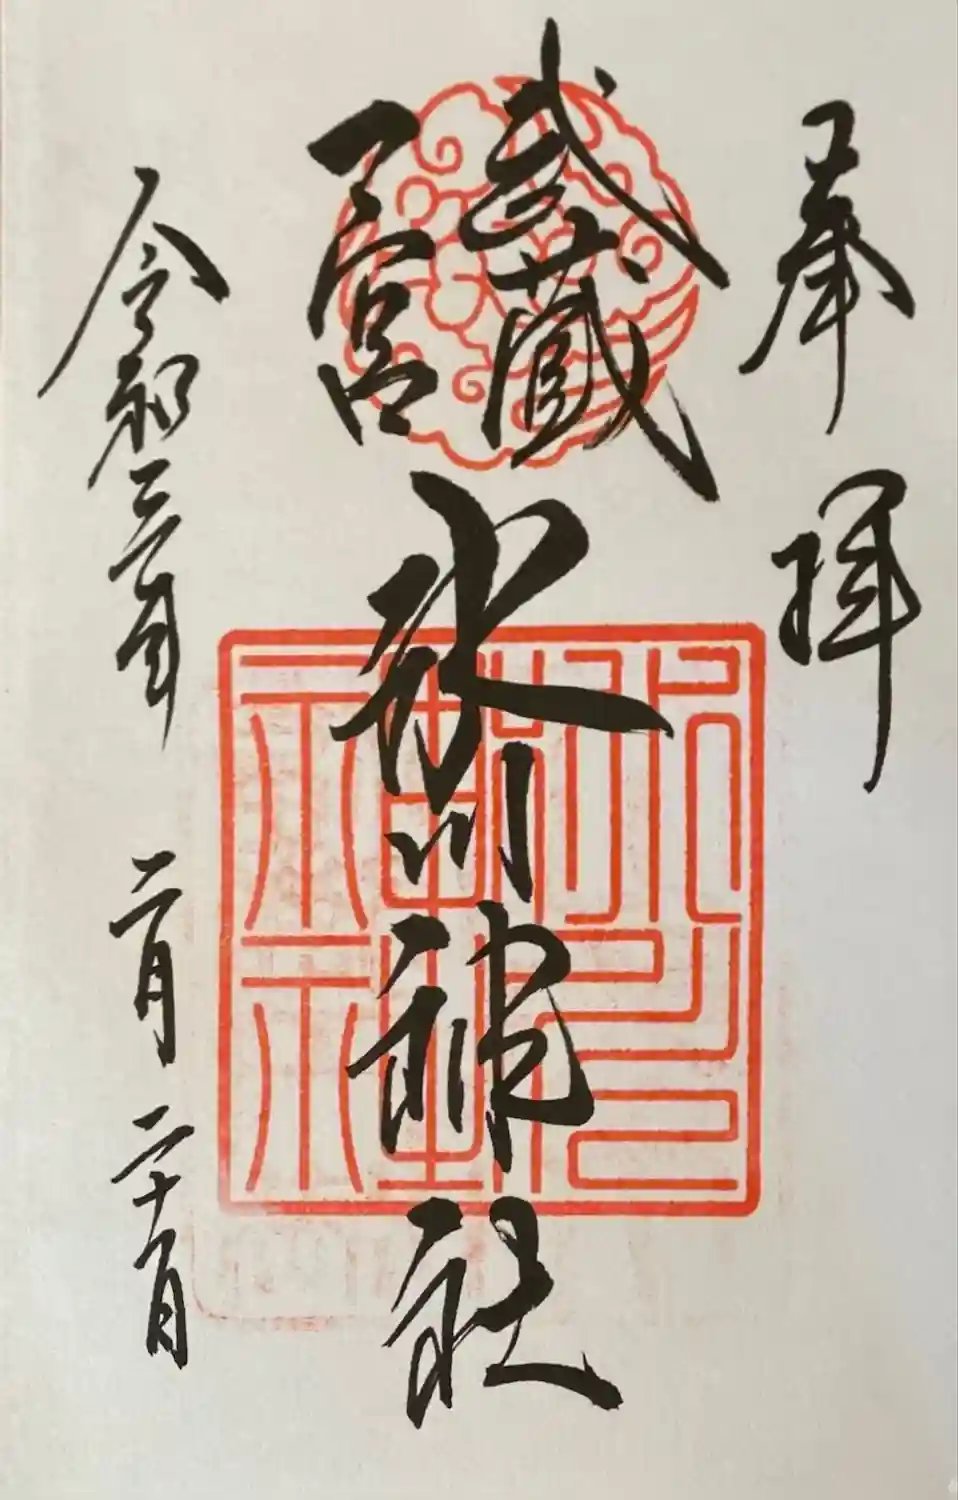 奉拝
武蔵
一宮
氷川神社
令和三年 二月 二十一日
氷川
神社